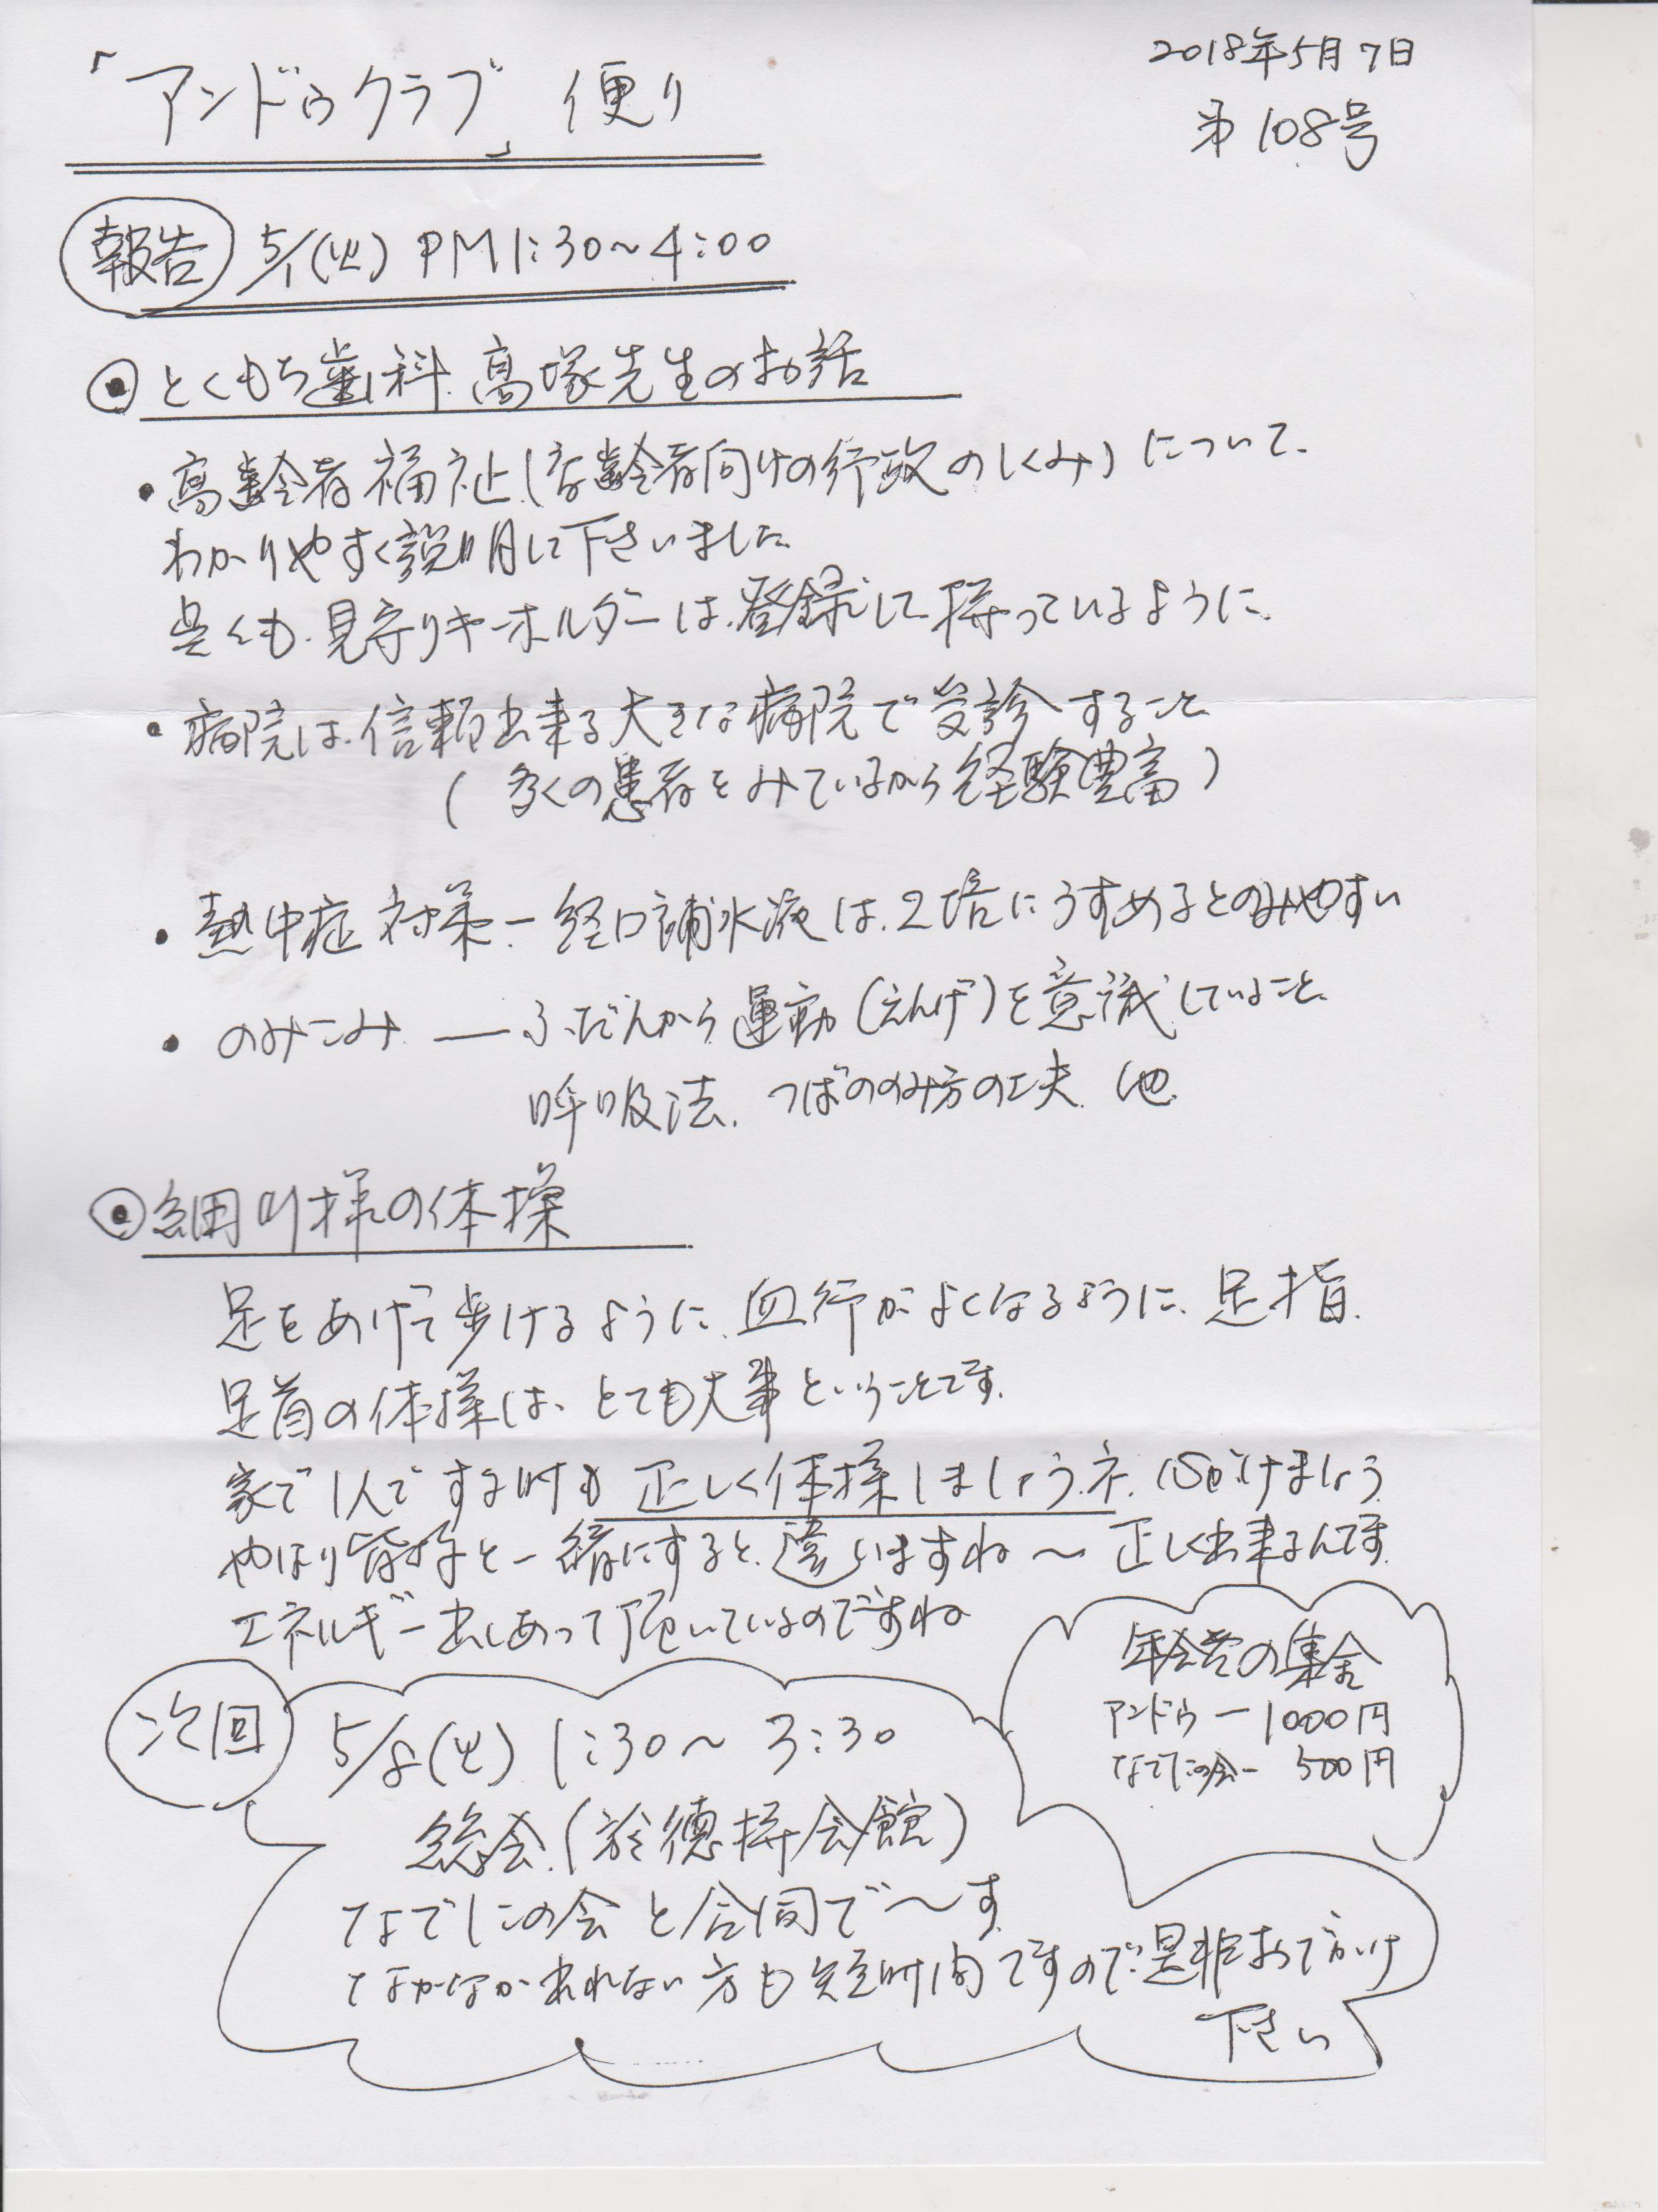 「アンドゥクラブ」便り
2018年5月7日
第108号
報告 5/1(火) PM1:30〜4:00
とくもち歯科 高塚先生のお話
・高齢者福祉(高齢者向けの行政のしくみ)について、
わかりやすく説明して下さいました
呉々も、見守りキーホルダーは、登録して持っているように、
・病院は、信頼出来る大きな病院で受診すること
(多くの患者をみているから経験豊富)
・熱中症対策ー経口補水液は、2倍にうすめるとのみやすい
・のみこみ ― ふだんから運動(えんげ)を意識していること、
呼吸法、つばののみ方の工夫 他
細川様の体操
足をあげて歩けるように、血行がよくなるように、足指、
足首の体操は、とても大事ということです。
家で1人でする時も正しく体操しましょうネ、心がけましょう
やはり皆様と一緒にすると、違いますね〜 正しく出来るんです。
エネルギー出しあって頂いているのですね
年会費の集金
アンドゥー1000円
なでしこの会ー500円
次回 5/8(火) 1:30〜3:30
総会(於徳持会館)
なでしこの会と合同で〜す
なかなか来れない方も短時間ですので是非おでかけ
下さい